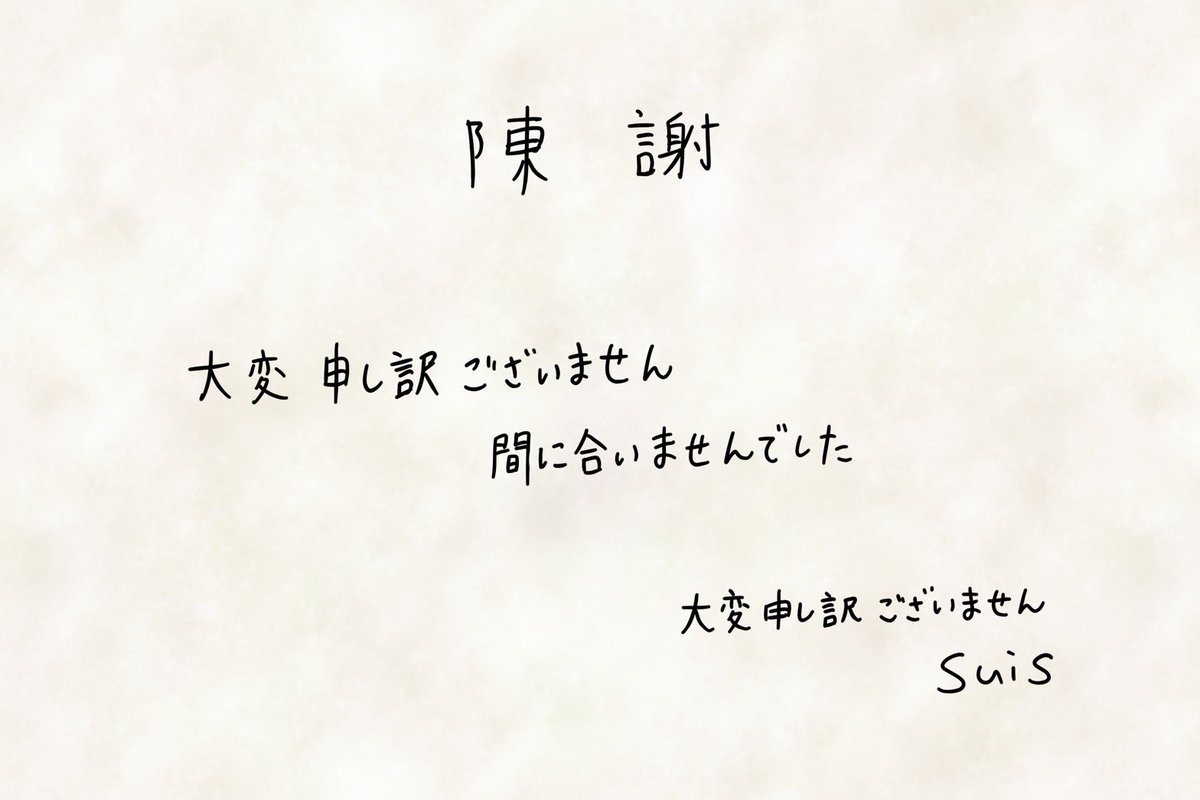 陳 謝
大変 申し訳 ございません
間に合いませんでした
大変 申し訳 ございません
suis